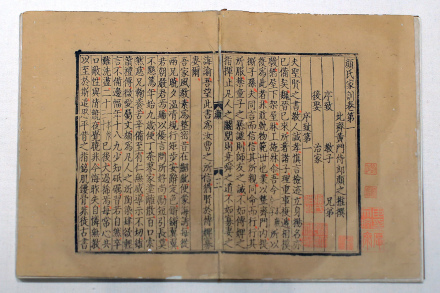 顏氏家訓卷第一
北齊黃門侍郎顏之推撰
序致 教子 兄弟
後娶 治家
序致第一
夫聖賢之書教人誠孝慎言檢迹立身揚名亦
已備矣魏晉已來所著諸子理重事複遞相模
斅猶屋下架屋牀上施牀耳吾今所以復
為此者非敢軌物範世也業以整齊門內提
撕子孫夫同言而信信其所親同命而行行其
所服禁童子之暴謔則師友之誡不如傅婢之
指揮止凡人之鬬鬩則堯舜之道不如寡妻之
誨諭吾望此書為汝曹之所信猶賢於傅婢寡
妻耳
吾家風教素為整密昔在齠齔便蒙誨誘每從
兩兄曉夕溫凊規行矩步安辭定色鏘鏘翼翼
若朝嚴君焉賜以優言問所好尚勵短引長莫
不懇篤年始九歲便丁荼蓼家塗離散百口索
然慈兄鞠養苦辛備至有仁無威導示不切雖
讀禮傳微愛屬文頗為凡人之所陶染肆欲輕
言不備邊幅年十八九少知砥礪習若自然卒
難洗盪二十已後大過稀焉每常心共
口敵性與情競夜覺曉非今悔昨失自憐無教
以至於斯追思平昔之指銘肌鏤骨非徒古書